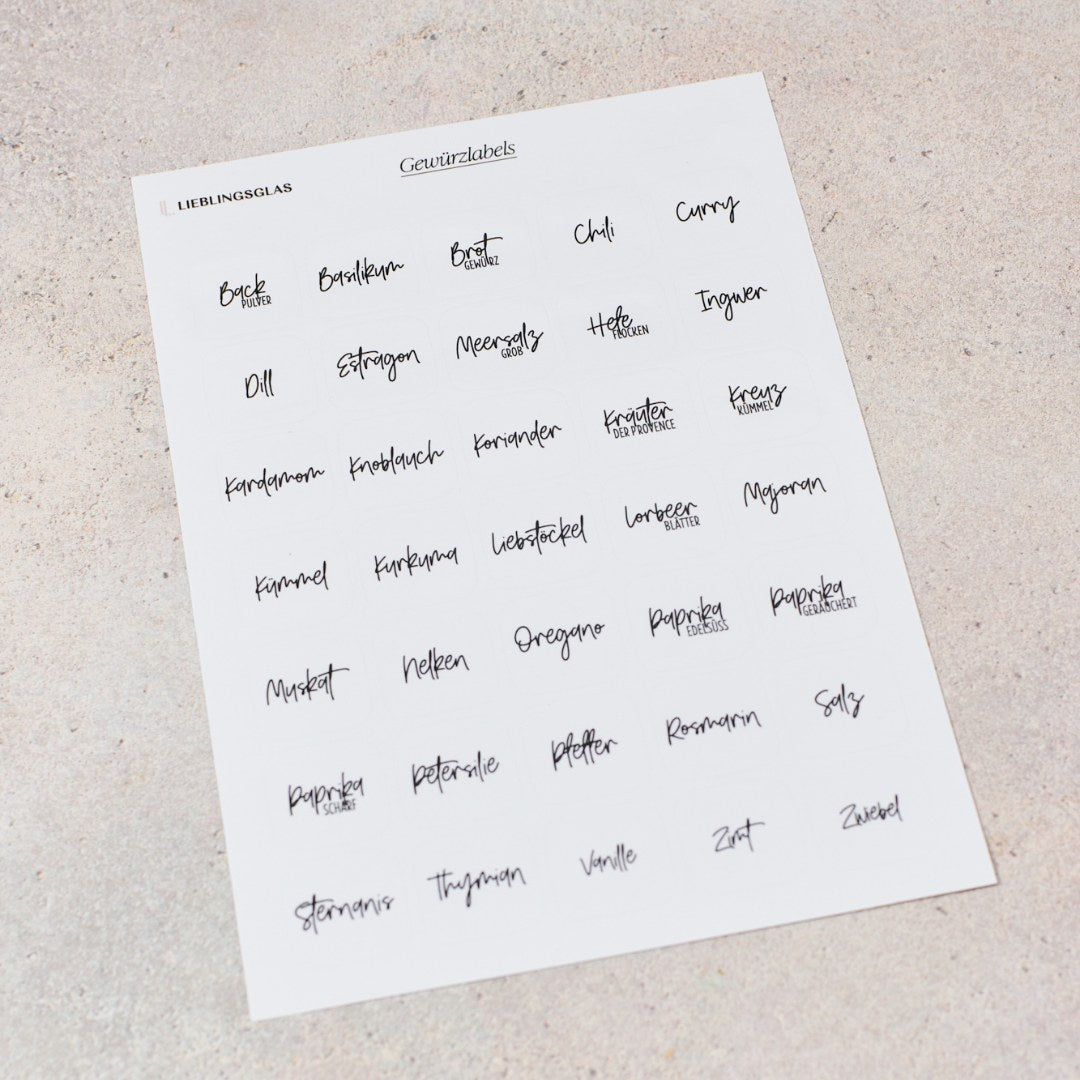 Gewürzlabels
LIEBLINGSGLAS
Back
PULVER
Basilikum
Brot
GEWÜRZ
Chili
Curry
Dill
Estragon
Meersalz
GROB
Hefe
FLOCKEN
Ingwer
Kardamom
Knoblauch
Koriander
Kräuter
DER PROVENCE
Kreuz
KÜMMEL
Kümmel
Kurkuma
Liebstöckel
Lorbeer
BLÄTTER
Majoran
Muskat
Nelken
Oregano
Paprika
EDELSÜSS
Paprika
GERÄUCHERT
Paprika
SCHARF
Petersilie
Pfeffer
Rosmarin
Salz
Sternanis
Thymian
Vanille
Zimt
Zwiebel